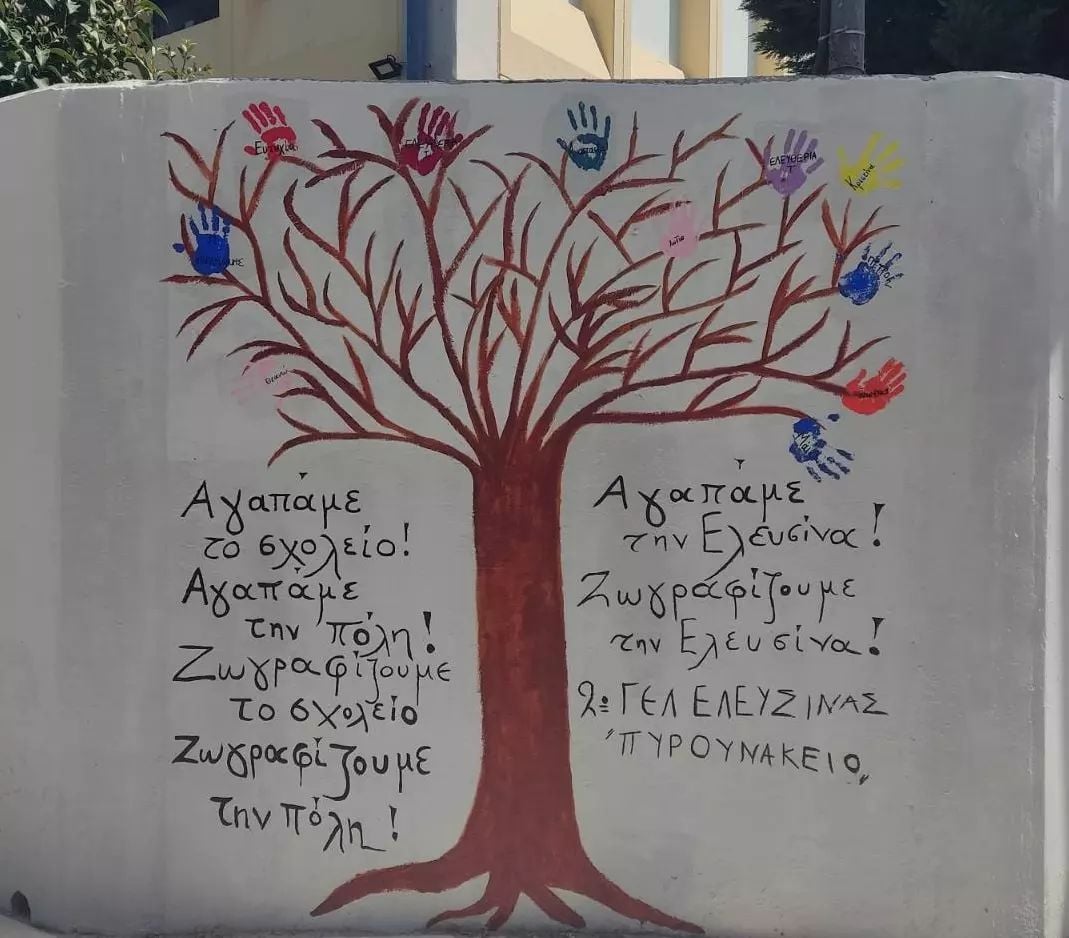 Ευτυχία
ΕΛΕΥΘΕΡΙΑ
ΕΛΕΥΘΕΡΙΑ
Τ
ΠΕΤΡΟΣ
Αγαπάμε
το σχολείο!
Αγαπάμε
την πόλη!
Ζωγραφίζουμε
το σχολείο
Ζωγραφίζουμε
την πόλη!
Αγαπάμε
την Ελευσίνα!
Ζωγραφίζουμε
την Ελευσίνα!
2ο ΓΕΛ ΕΛΕΥΣΙΝΑΣ
"ΠΥΡΟΥΝΑΚΕΙΟ"